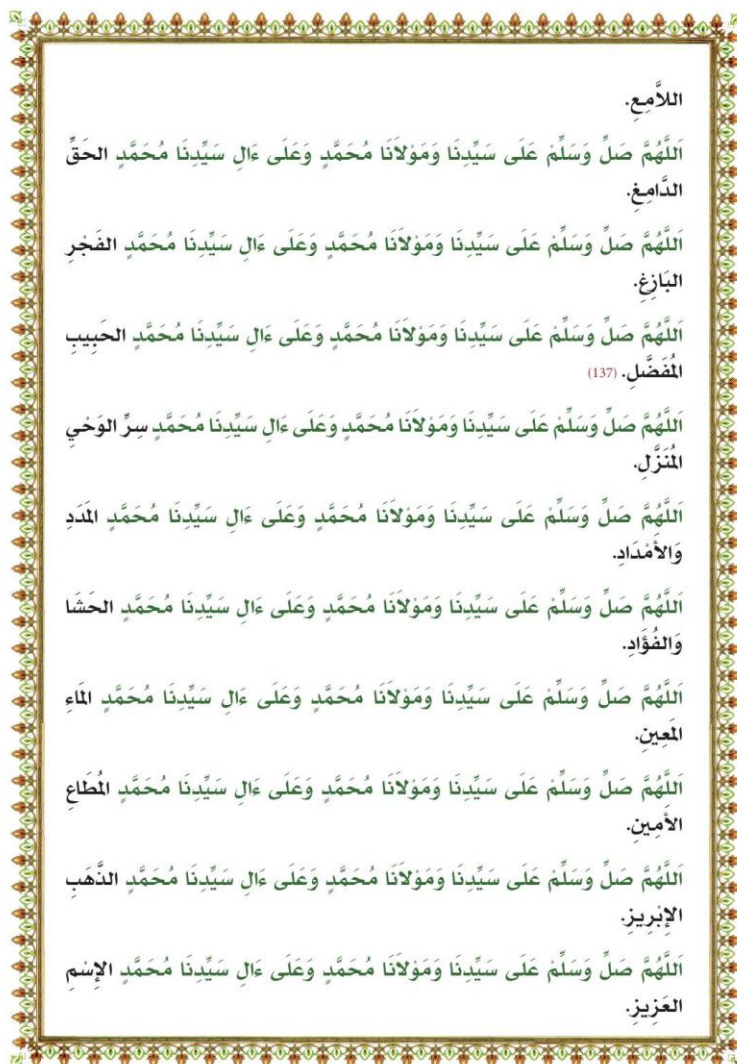 اللاَّمِعِ.
اَللَّهُمَّ صَلِّ وَسَلِّمْ عَلَى سَيِّدِنَا وَمَوْلاَنَا مُحَمَّدٍ وَعَلَى ءَالِ سَيِّدِنَا مُحَمَّدٍ الحَقِّ
الدَّامِغِ.
اَللَّهُمَّ صَلِّ وَسَلِّمْ عَلَى سَيِّدِنَا وَمَوْلاَنَا مُحَمَّدٍ وَعَلَى ءَالِ سَيِّدِنَا مُحَمَّدٍ الفَجْرِ
البَازِغِ.
اَللَّهُمَّ صَلِّ وَسَلِّمْ عَلَى سَيِّدِنَا وَمَوْلاَنَا مُحَمَّدٍ وَعَلَى ءَالِ سَيِّدِنَا مُحَمَّدٍ الحَبِيبِ
المُفَضَّلِ. (137)
اَللَّهُمَّ صَلِّ وَسَلِّمْ عَلَى سَيِّدِنَا وَمَوْلاَنَا مُحَمَّدٍ وَعَلَى ءَالِ سَيِّدِنَا مُحَمَّدٍ سِرِّ الوَحْيِ
المُنَزَّلِ.
اَللَّهُمَّ صَلِّ وَسَلِّمْ عَلَى سَيِّدِنَا وَمَوْلاَنَا مُحَمَّدٍ وَعَلَى ءَالِ سَيِّدِنَا مُحَمَّدٍ المَدَدِ
وَالأَمْدَادِ.
اَللَّهُمَّ صَلِّ وَسَلِّمْ عَلَى سَيِّدِنَا وَمَوْلاَنَا مُحَمَّدٍ وَعَلَى ءَالِ سَيِّدِنَا مُحَمَّدٍ الحَشَا
وَالفُؤَادِ.
اَللَّهُمَّ صَلِّ وَسَلِّمْ عَلَى سَيِّدِنَا وَمَوْلاَنَا مُحَمَّدٍ وَعَلَى ءَالِ سَيِّدِنَا مُحَمَّدٍ المَاءِ
المَعِينِ.
اَللَّهُمَّ صَلِّ وَسَلِّمْ عَلَى سَيِّدِنَا وَمَوْلاَنَا مُحَمَّدٍ وَعَلَى ءَالِ سَيِّدِنَا مُحَمَّدٍ المُطَاعِ
الأَمِينِ.
اَللَّهُمَّ صَلِّ وَسَلِّمْ عَلَى سَيِّدِنَا وَمَوْلاَنَا مُحَمَّدٍ وَعَلَى ءَالِ سَيِّدِنَا مُحَمَّدٍ الذَّهَبِ
الإِبْرِيزِ.
اَللَّهُمَّ صَلِّ وَسَلِّمْ عَلَى سَيِّدِنَا وَمَوْلاَنَا مُحَمَّدٍ وَعَلَى ءَالِ سَيِّدِنَا مُحَمَّدٍ الإِسْمِ
العَزِيزِ.